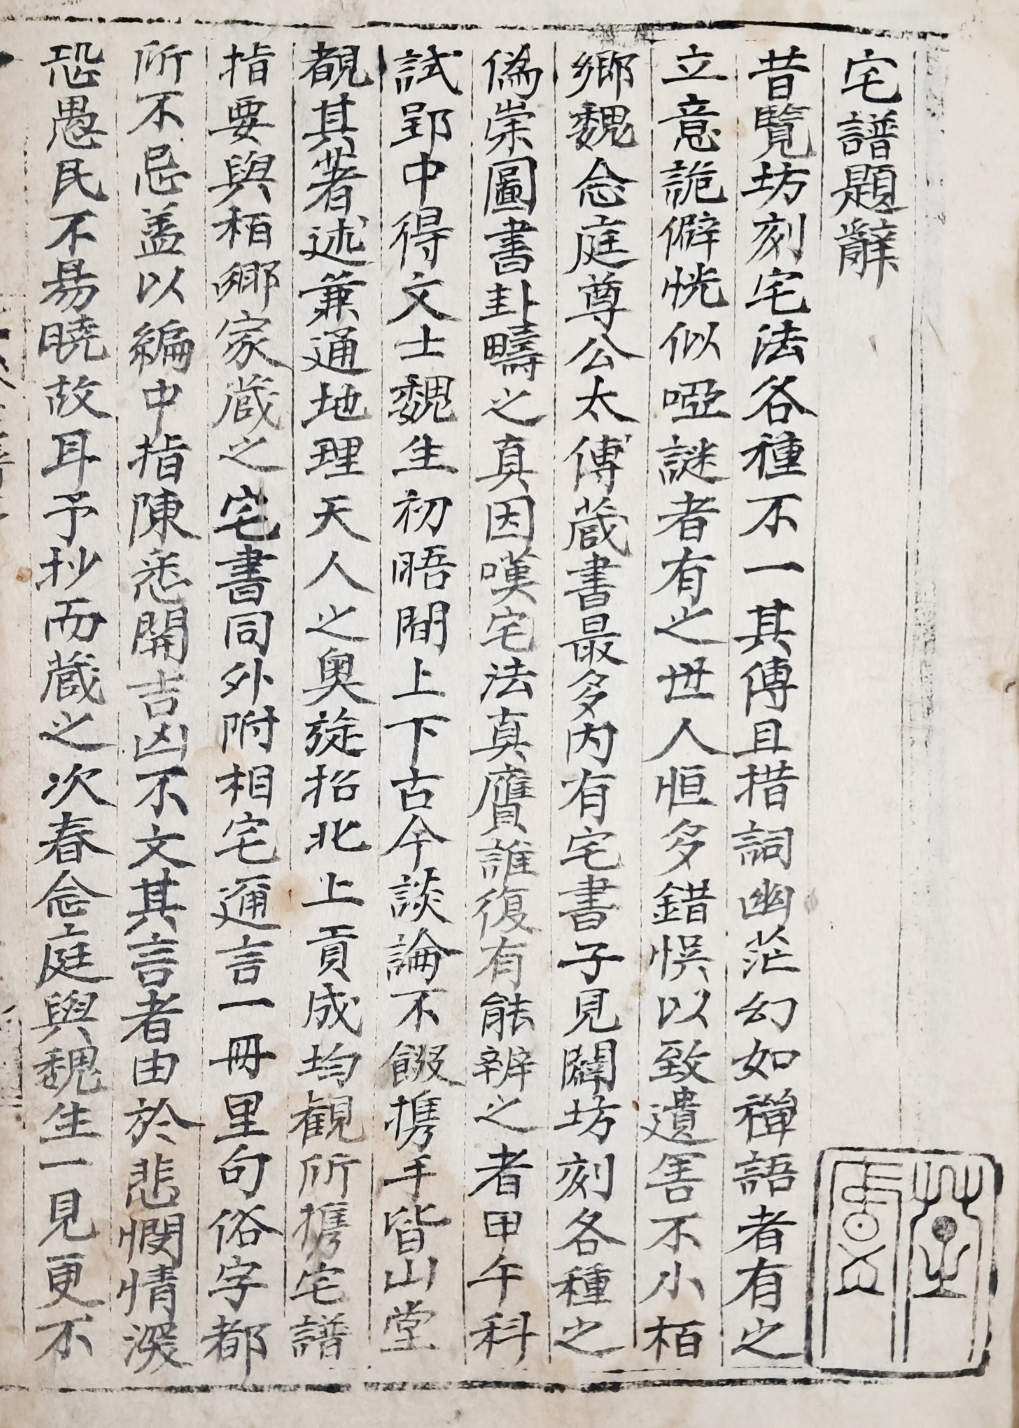 宅譜題辭
昔覽坊刻宅法各種不一其傳且措詞幽茫幻如禪語者有之
立意詭僻恍似啞謎者有之世人恒多錯悞以致遺害不小栢
鄉魏念庭尊公太傅蔵書最多内有宅書子見闢坊刻各種之
偽崇圖書卦疇之真因嘆宅法真贗誰復有能辨之者甲午科
試郢中得文士魏生初晤間上下古今談論不餒攜手皆山堂
覩其著述兼通地理天人之奥旋招北上貢成均観所攜宅譜
指要與栢鄉家蔵之宅書同外附相宅邇言一冊里句俗字都
所不忌盖以編中指陳悉開吉凶不文其言者由於悲憫情深
恐愚民不易曉故耳予抄而蔵之次春念庭與魏生一見更不